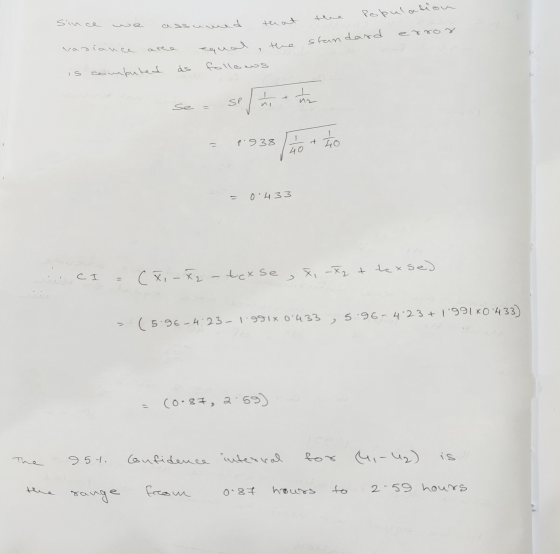 Since we assumed that the Population
variance are equal, the standard error
is computed as follows
Se = SP √(1/n1 + 1/n2)
= 1.938 √(1/40 + 1/40)
= 0.433
∴ CI = (x̄1 - x̄2 - tc × Se, x̄1 - x̄2 + tc × Se)
= (5.96 - 4.23 - 1.991 × 0.433, 5.96 - 4.23 + 1.991 × 0.433)
= (0.87, 2.59)
The 95% Confidence interval for (μ1 - μ2) is
the range from 0.87 hours to 2.59 hours